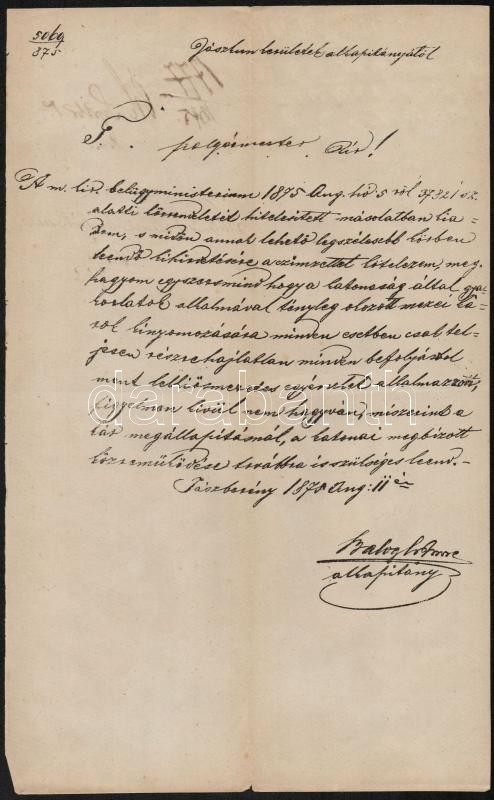 5069
875
Jászkun kerületek alkapitányától
T. polgármester Úr!
A m. kir. belügyministerium 1875 Aug. hó 5 ről 37321 sz.
alatti körrendeletét hitelesített másolatban kia-
dom, s midőn annak lehető legszélesebb körben
leendő kihirdetésére a czimzettet kötelezem, meg-
hagyom egyszersmind hogy a katonaság által gya-
korlatok alkalmával tényleg okozott mezei ká-
rok kinyomozására minden esetben csak tel-
jesen részrehajlatlan minden befolyástol
ment lelkiismeretes egyéneket alkalmazzon,
figyelmen kivül nem hagyván, miszerint a
kár megállapitásnál, a katonai megbizott
közreműködése továbbra is szükséges leend.-
Jászberény 1875 Aug: 11én
Balogh Imre
alkapitány
darabanth